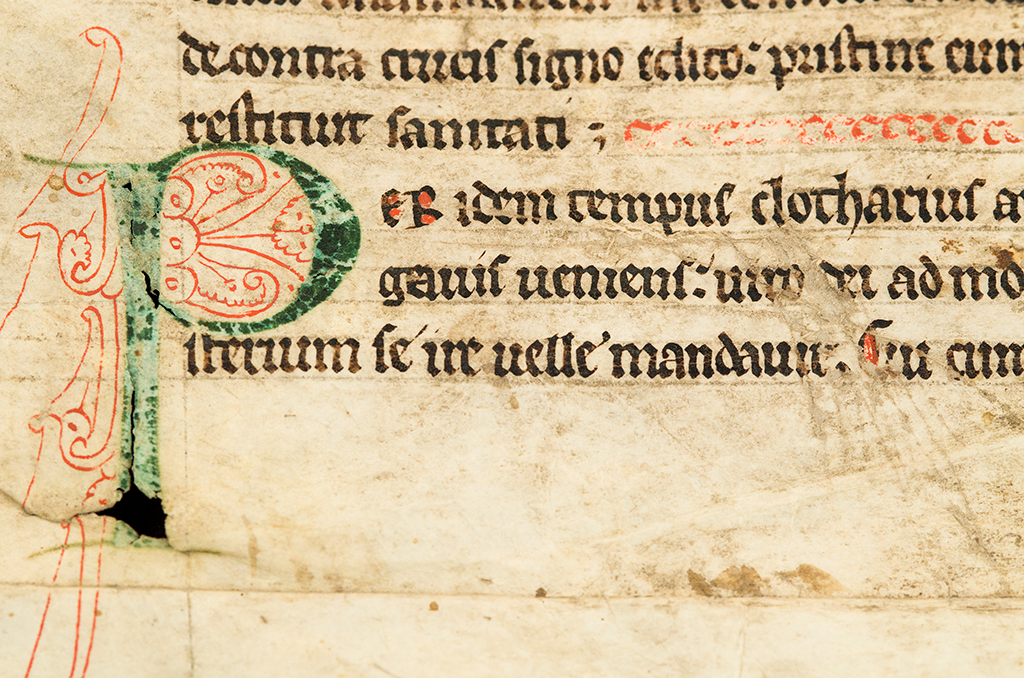 de contra crucis signo edito: pristine eum
restituit sanitati ;
PER idem tempus clotharius a
gauis ueniens: uiro dei ad mo
isterium se ire uelle mandauit. Seu cum